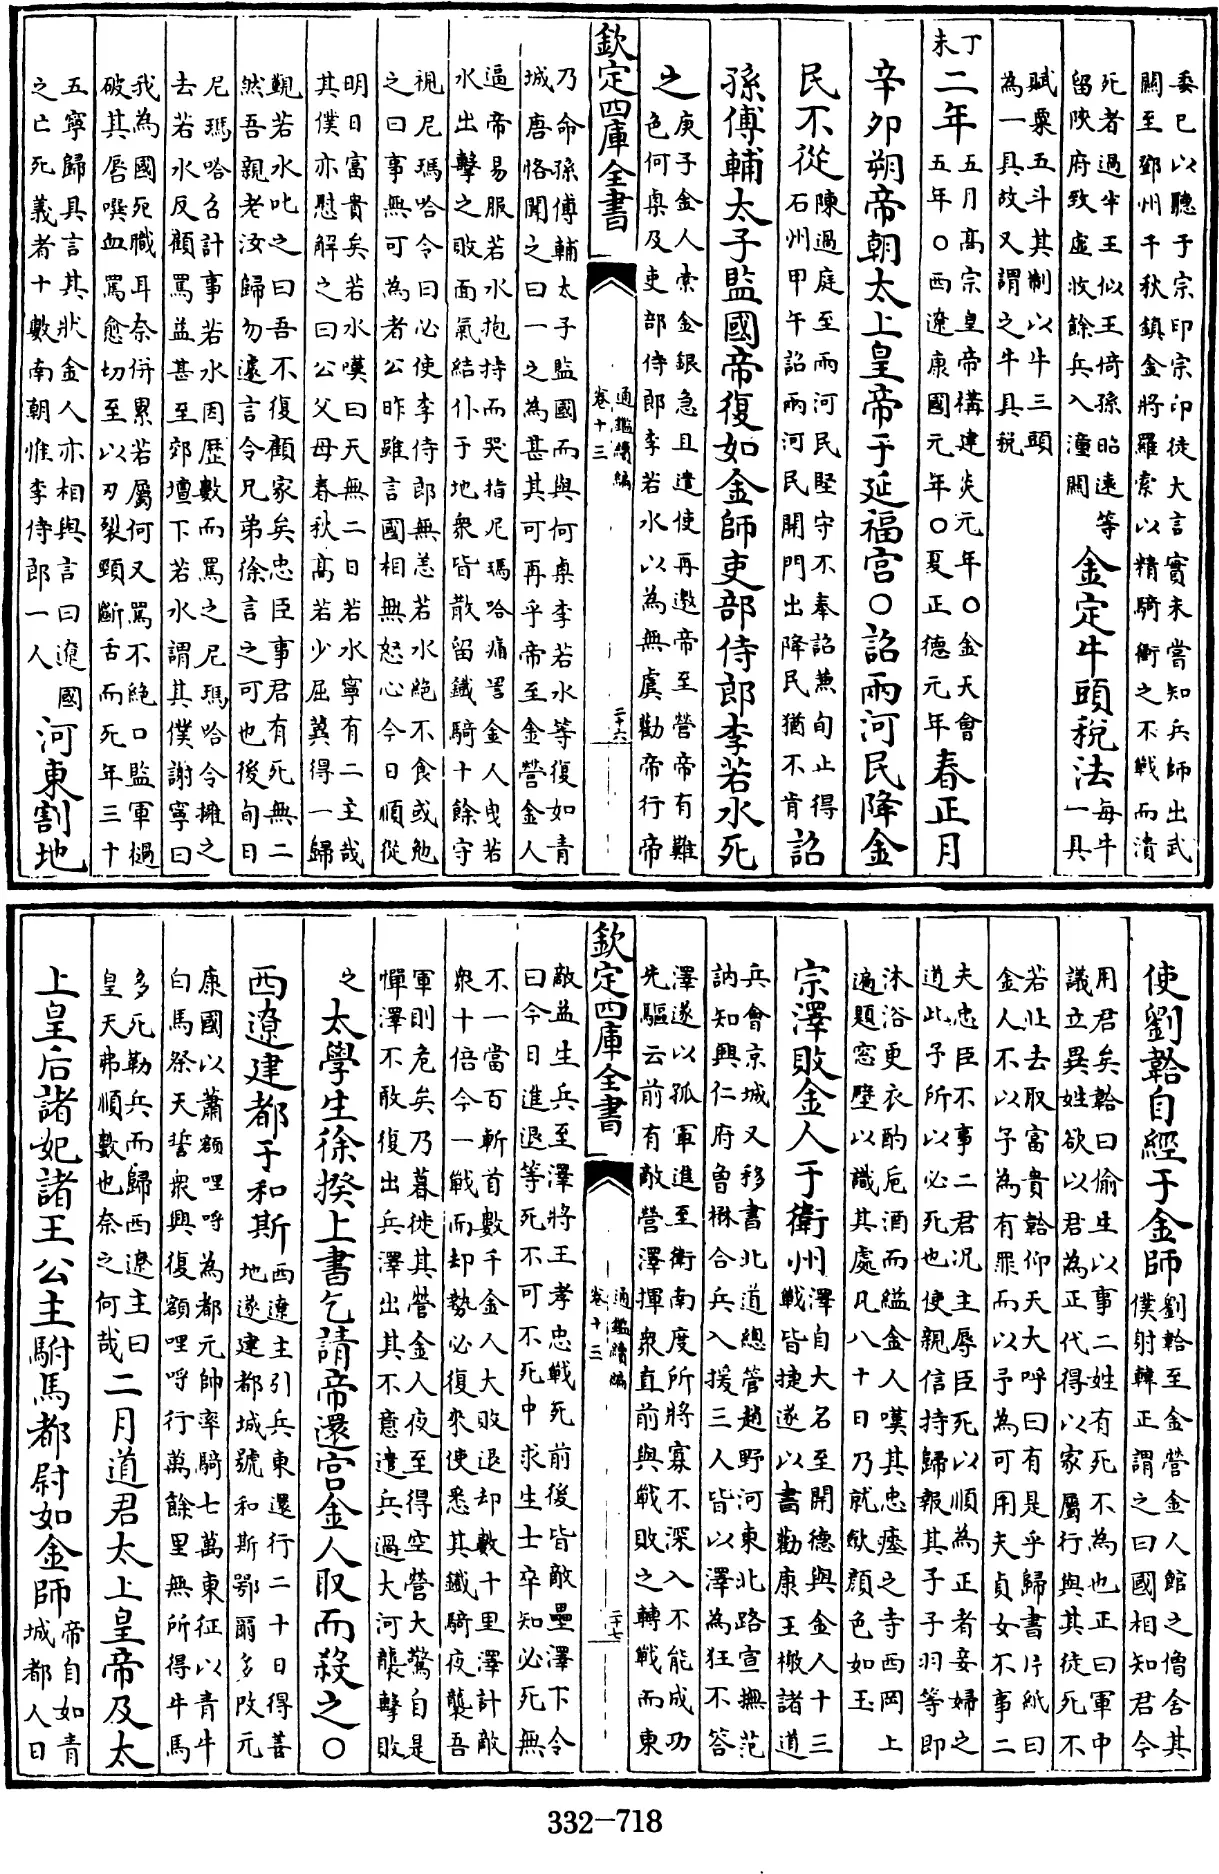 委已以聽于宗印宗印徒大言實未嘗知兵師出武
關至鄧州千秋鎮金將羅索以精騎衝之不戰而潰
死者過半王似王倚孫昭遠等
留陝府致虛收餘兵入潼關
金定牛頭稅法
每牛
一具
賦粟五斗其制以牛三頭
為一具故又謂之牛具稅
丁未
二年
五月高宗皇帝構建炎元年○金天會
五年○西遼康國元年○夏正德元年
春正月
辛卯朔帝朝太上皇帝于延福宮○詔兩河民降金
民不從
陳過庭至兩河民堅守不奉詔兼旬止得
石州甲午詔兩河民開門出降民猶不肯
詔
孫傅輔太子監國帝復如金師吏部侍郎李若水死
之
庚子金人索金銀急且遣使再邀帝至營帝有難
色何㮚及吏部侍郎李若水以為無虞勸帝行帝
欽定四庫全書
通鑑續編
卷十三
二十六
乃命孫傅輔太子監國而與何㮚李若水等復如青
城唐恪聞之曰一之為甚其可再乎帝至金營金人
逼帝易服若水抱持而哭指尼瑪哈痛詈金人曳若
水出擊之敗面氣結仆于地衆皆散留鐵騎十餘守
視尼瑪哈令曰必使李侍郎無恙若水絶不食或勉
之曰事無可為者公昨雖言國相無怒心今日順從
明日富貴矣若水嘆曰天無二日若水寧有二主哉
其僕亦慰解之曰公父母春秋高若少屈冀得一歸
覲若水叱之曰吾不復顧家矣忠臣事君有死無二
然吾親老汝歸勿遽言令兄弟徐言之可也後旬日
尼瑪哈召計事若水因歷數而罵之尼瑪哈令擁之
去若水反顧罵益甚至郊壇下若水謂其僕謝寧曰
我為國死職耳奈併累若屬何又罵不絶口監軍撾
破其唇噀血罵愈切至以刃裂頸斷舌而死年三十
五寧歸具言其狀金人亦相與言曰遼國
之亡死義者十數南朝惟李侍郎一人
河東割地
使劉韐自經于金師
劉韐至金營金人館之僧舍其
僕射韓正謂之曰國相知君今
用君矣韐曰偷生以事二姓有死不為也正曰軍中
議立異姓欲以君為正代得以家屬行與其徒死不
若北去取富貴韐仰天大呼曰有是乎歸書片紙曰
金人不以予為有罪而以予為可用夫貞女不事二
夫忠臣不事二君況主辱臣死以順為正者妾婦之
道此予所以必死也使親信持歸報其子子羽等即
沐浴更衣酌巵酒而縊金人嘆其忠瘞之寺西岡上
遍題窓壁以識其處凡八十日乃就歛顔色如玉
宗澤敗金人于衛州
澤自大名至開德與金人十三
戰皆捷遂以書勸康王檄諸道
兵會京城又移書北道總管趙野河東北路宣撫范
訥知興仁府曾楙合兵入援三人皆以澤為狂不答
澤遂以孤軍進至衛南度所將寡不深入不能成功
先驅云前有敵營澤揮衆直前與戰敗之轉戰而東
欽定四庫全書
通鑑續編
卷十三
二十七
敵益生兵至澤將王孝忠戰死前後皆敵壘澤下令
曰今日進退等死不可不死中求生士卒知必死無
不一當百斬首數千金人大敗退却數十里澤計敵
衆十倍今一戰而却勢必復來使悉其鐵騎夜襲吾
軍則危矣乃暮徙其營金人夜至得空營大驚自是
憚澤不敢復出兵澤出其不意遣兵過大河襲擊敗
之
太學生徐揆上書乞請帝還宮金人取而殺之○
西遼建都于和斯
西遼主引兵東還行二十日得善
地遂建都城號和斯鄂爾多改元
康國以蕭額哩呼為都元帥率騎七萬東征以青牛
白馬祭天誓衆興復額哩呼行萬餘里無所得牛馬
多死勒兵而歸西遼主曰
皇天弗順數也奈之何哉
二月道君太上皇帝及太
上皇后諸妃諸王公主駙馬都尉如金師
帝自如青
城都人日
332-718